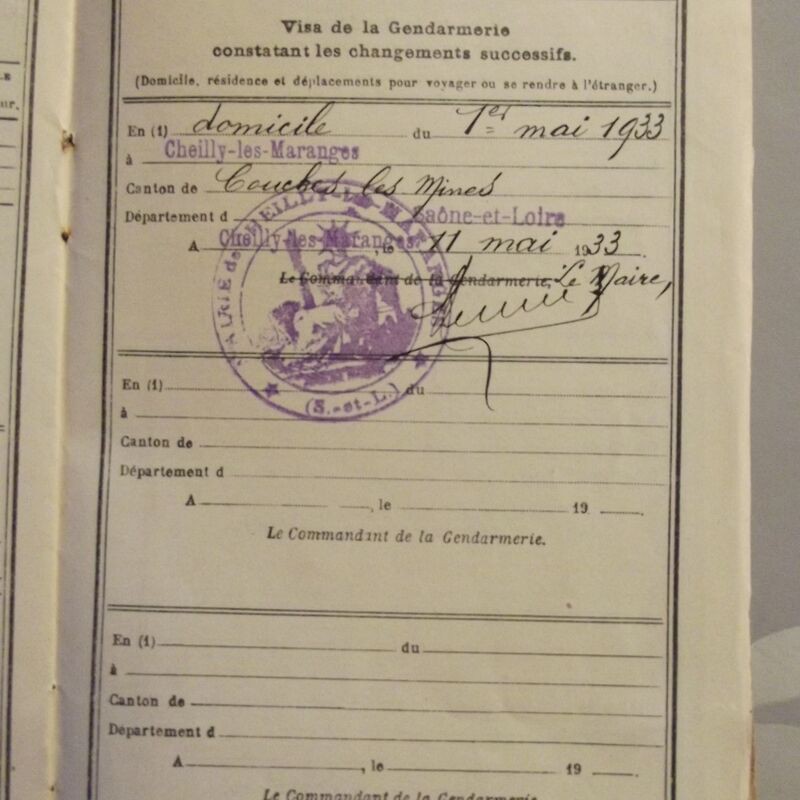 Visa de la Gendarmerie
constatant les changements successifs.
(Domicile, résidence et déplacements pour voyager ou se rendre à l'étranger.)
En (1) domicile du 1er mai 1933
à Cheilly-les-Maranges
Canton de Couches les Mines
Département d Saône-et-Loire
A Cheilly-les-Maranges, le 11 mai 1933.
Le Commandant de la Gendarmerie, Le Maire,
MAIRIE de CHEILLY-les-MARANGES
(S.-et-L.)
En (1) du
à
Canton de
Département d
A , le 19 .
Le Commandant de la Gendarmerie.
En (1) du
à
Canton de
Département d
A , le 19 .
Le Commandant de la Gendarmerie.